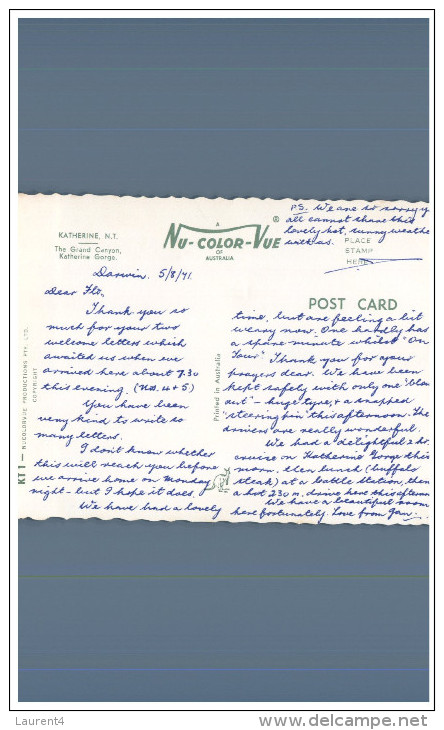 KATHERINE, N.T.
The Grand Canyon,
Katherine Gorge.
A
NU-COLOR-VUE
OF
AUSTRALIA
®
P.S. We are so sorry y
all cannot share this
lovely hot, sunny weathe
with us.
PLACE
STAMP
HERE
POST CARD
KT 1 — NUCOLORVUE PRODUCTIONS PTY. LTD.
COPYRIGHT
Printed in Australia
Darwin, 5/8/71.
Dear Flo,
Thank you so
much for your two
welcome letters which
awaited us when we
arrived here about 7.30
this evening. (Nos. 4 + 5)
You have been
very kind to write so
many letters.
I don't know whether
this will reach you before
we arrive home on Monday
night - but I hope it does.
We have had a lovely
time, but are feeling a bit
weary now. One hardly has
a spare minute whilst "On
Tour". Thank you for your
prayers dear. We have been
kept safely with only one "blow
out" - huge tyre, & a snapped
"steering pin" this afternoon. The
drivers are really wonderful.
We had a delightful 2 hr.
cruise on Katherine Gorge this
morn. then lunch (buffalo
steak) at a cattle station, then
a hot 230 m. drive here this aftern
We have a beautiful room
here fortunately. Love from
Laurent4
www.delcampe.net